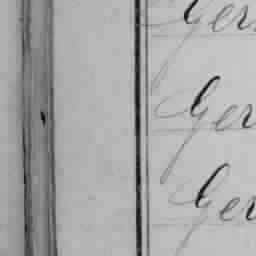 Ger
Ger
Ger